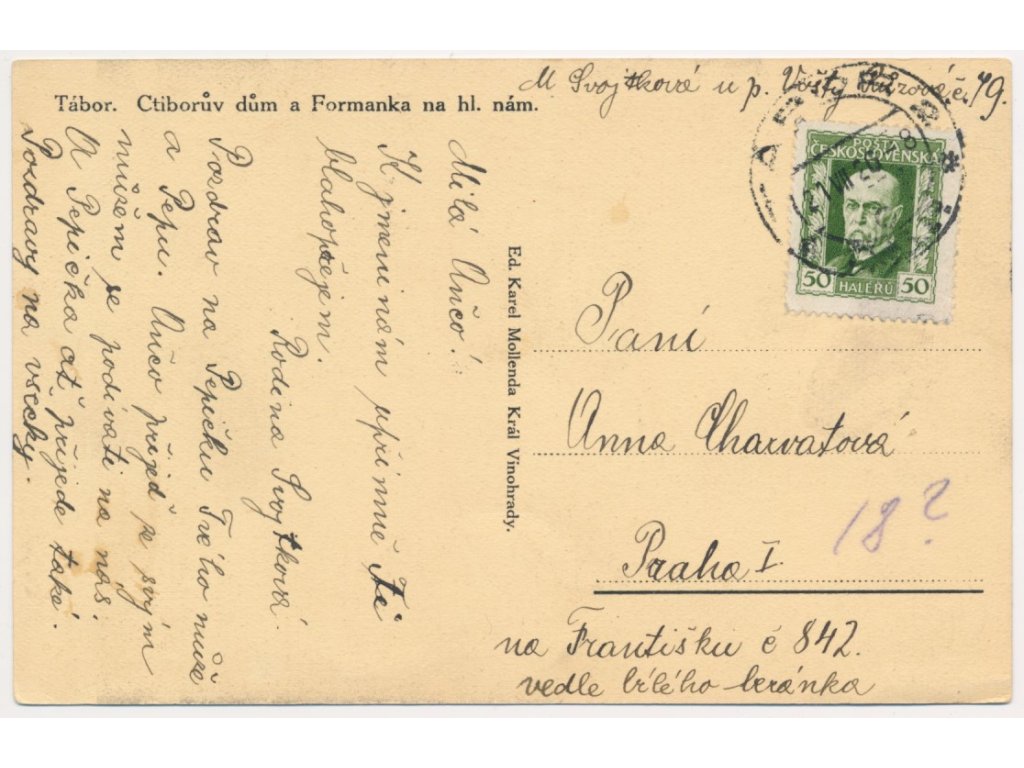 M Svojtková u p. Vošty č. 79.
Tábor. Ctiborův dům a Formanka na hl. nám.
POŠTA
ČESKOSLOVENSKÁ
50 HALÉŘŮ 50
Milá Aučo!
K jmeninám upřimně Ti
blahopřejem.
Rodina Svojtková
Pozdrav na Pepičku Tvého muže
a Pepu. Aučo přijeď ze svým
mužem se podivati na nás.
A Pepička ať přijede také.
Pozdravy na vsecky.
Ed. Karel Mollenda Král Vinohrady.
Paní
Anna Charvatová
18?
Praha I.
na Františku č 842.
vedle bílého beránka